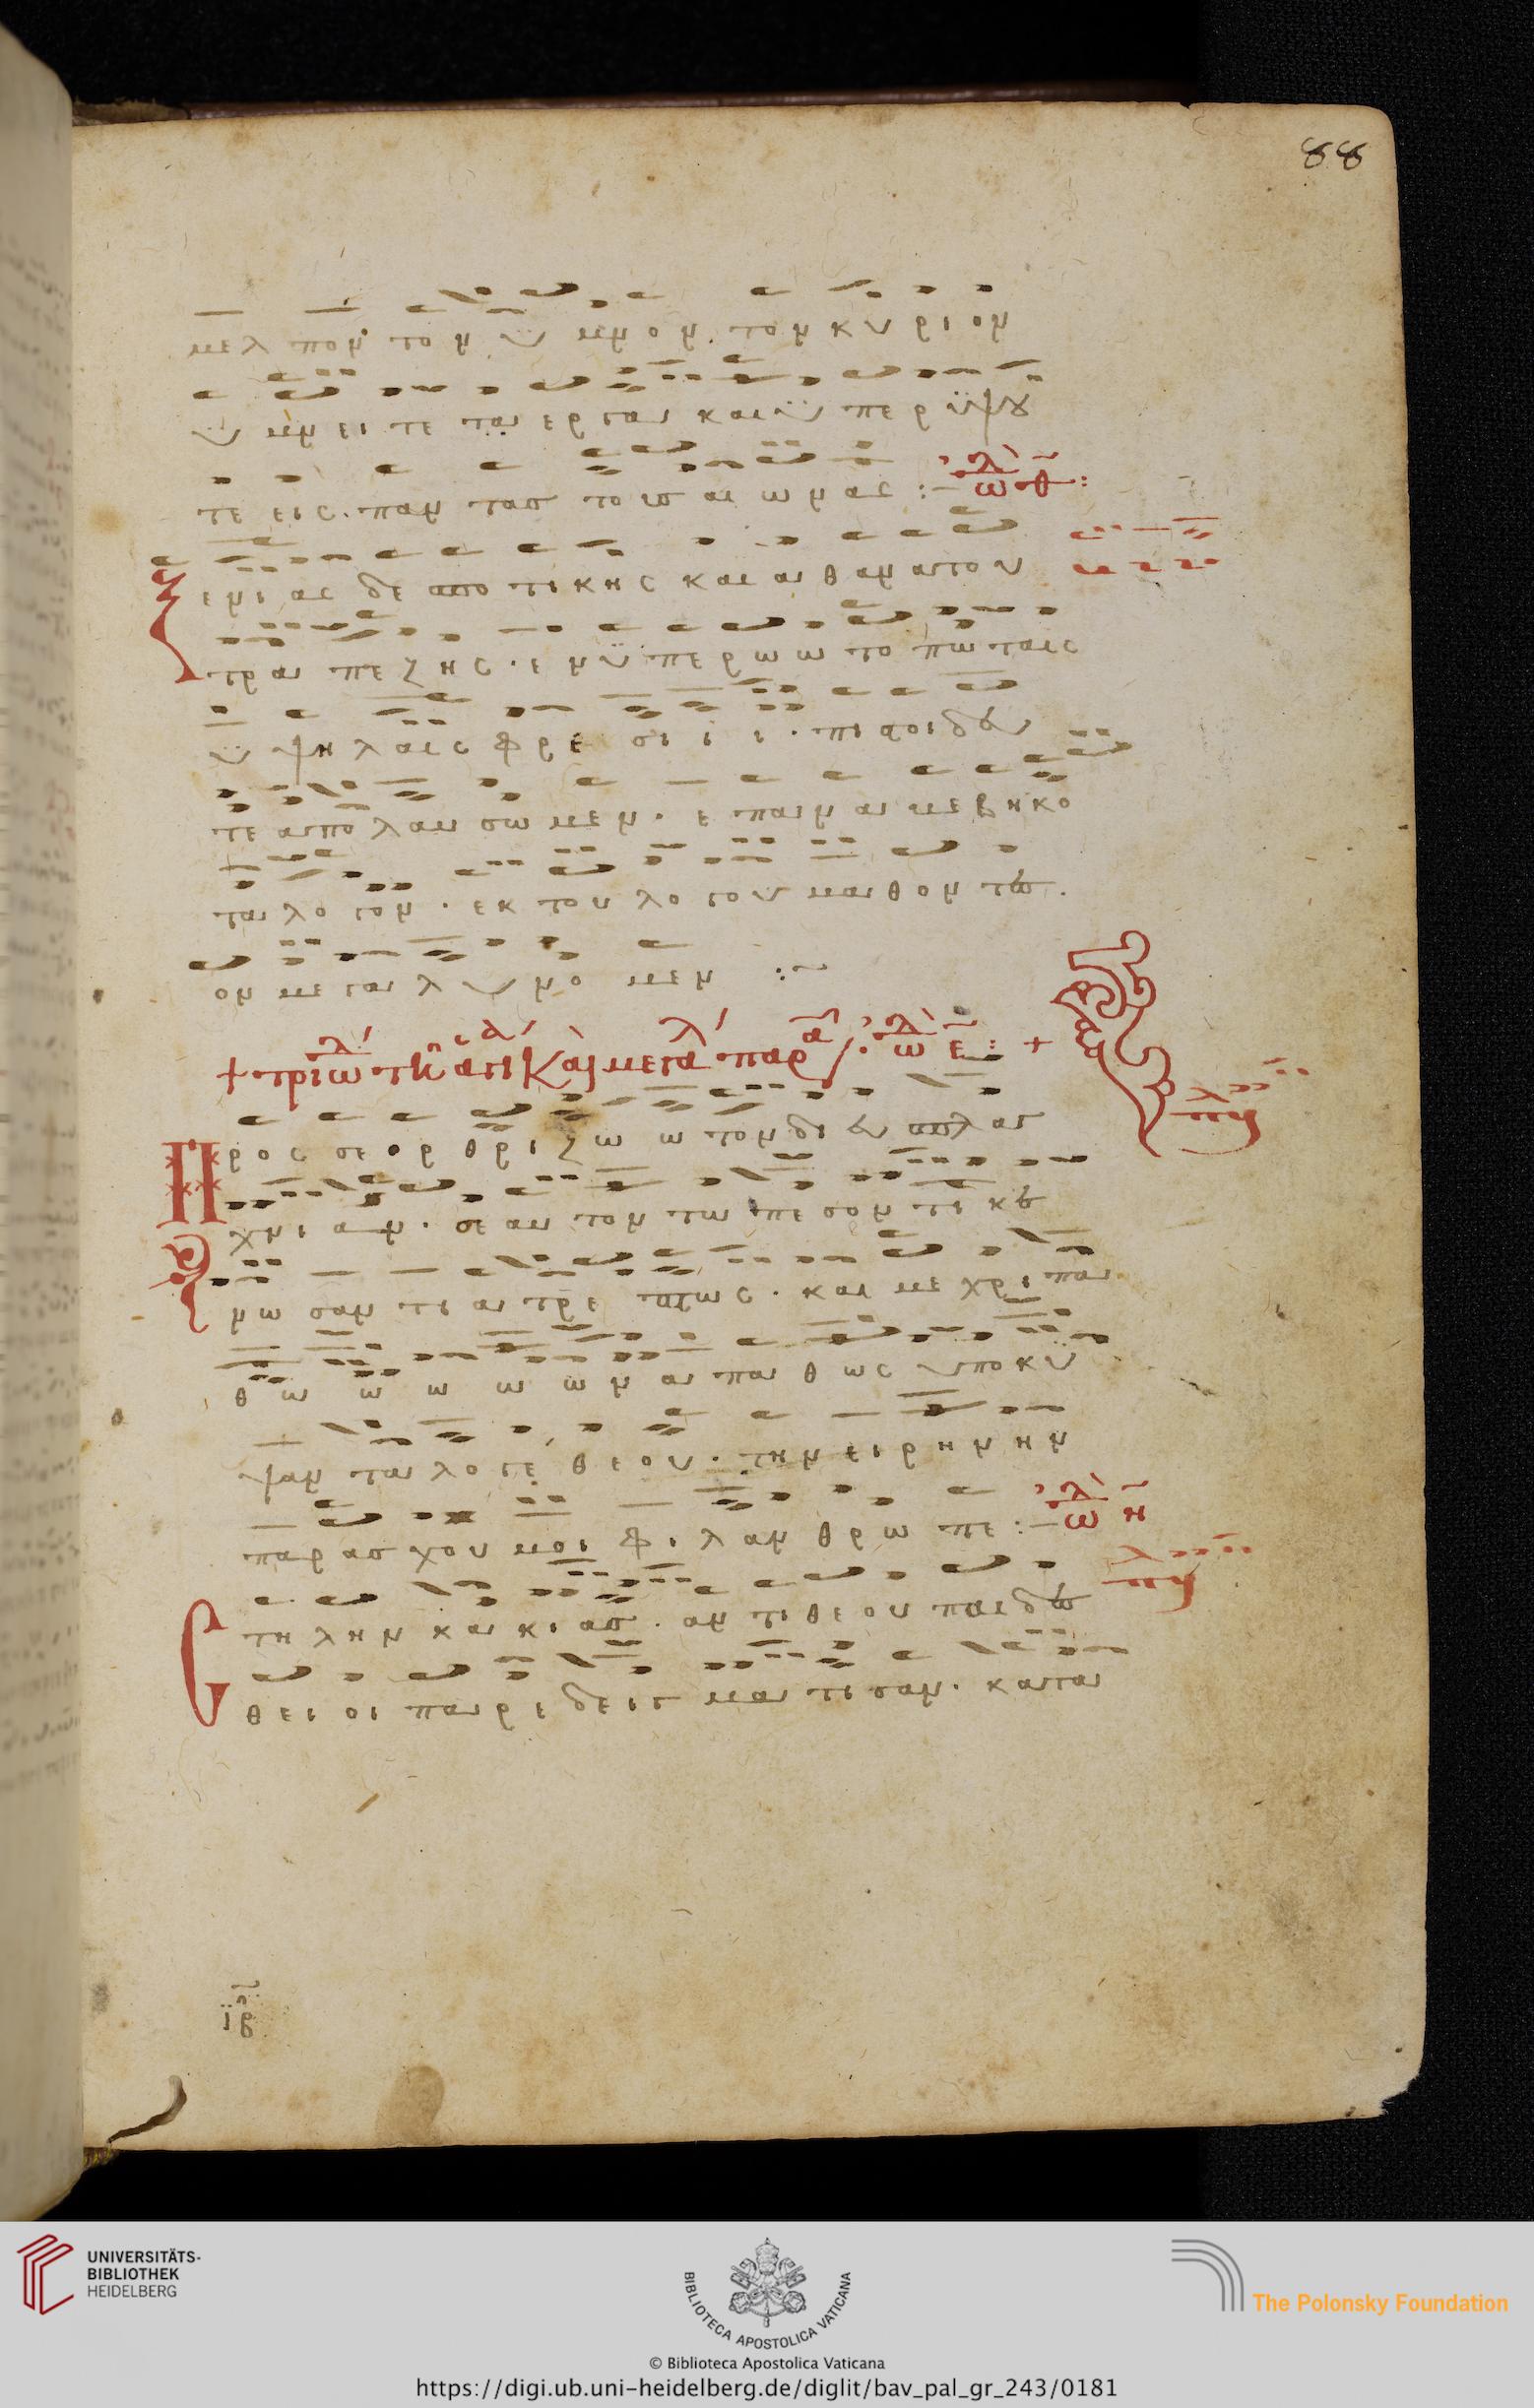 88
μελπον τον υμνον. τον κυριον
υμνειτε τα εργα και υπερυψου
τε εις. παντας τους αιωνας :- ᾠδὴ θ:
ενιας δεσποτικης και αθανατου
τραπεζης. εν υπερωω τοπω ταις
υψηλαις φρεσιιι. πιστοι δευ
τε απολαυσωμεν. επαναβεβηκο
τα λογον. εκ του λογου μαθοντες.
ον μεγαλυνομεν :~
+ τριώδ τη αγι και μεγα παρα ᾠδὴ ε : +
ρος σε ορθριζωω τον δι ευσπλαγ
χνιαν. σεαυτον τω πεσοντι κε
νωσαντι ατρεπτως. και μεχρι πα
θωωωωων απαθως υποκυ
ψαντα λογε θεου. την ειρηνην
παρασχου μοι φιλανθρωπε :- ᾠδὴ η
τηλην κακιας. αντιθεου παιδες
θειοι παρεδειγματισαν. κατα
ιβ
UNIVERSITÄTS-
BIBLIOTHEK
HEIDELBERG
BIBLIOTECA APOSTOLICA VATICANA
The Polonsky Foundation
© Biblioteca Apostolica Vaticana
https://digi.ub.uni-heidelberg.de/diglit/bav_pal_gr_243/0181